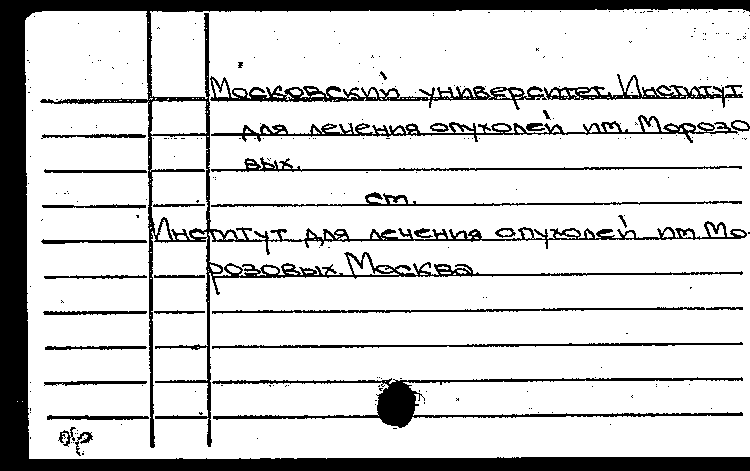 Московский университет. Институт
для лечения опухолей им. Морозо
вых.
ст.
Институт для лечения опухолей им. Мо-
розовых. Москва.